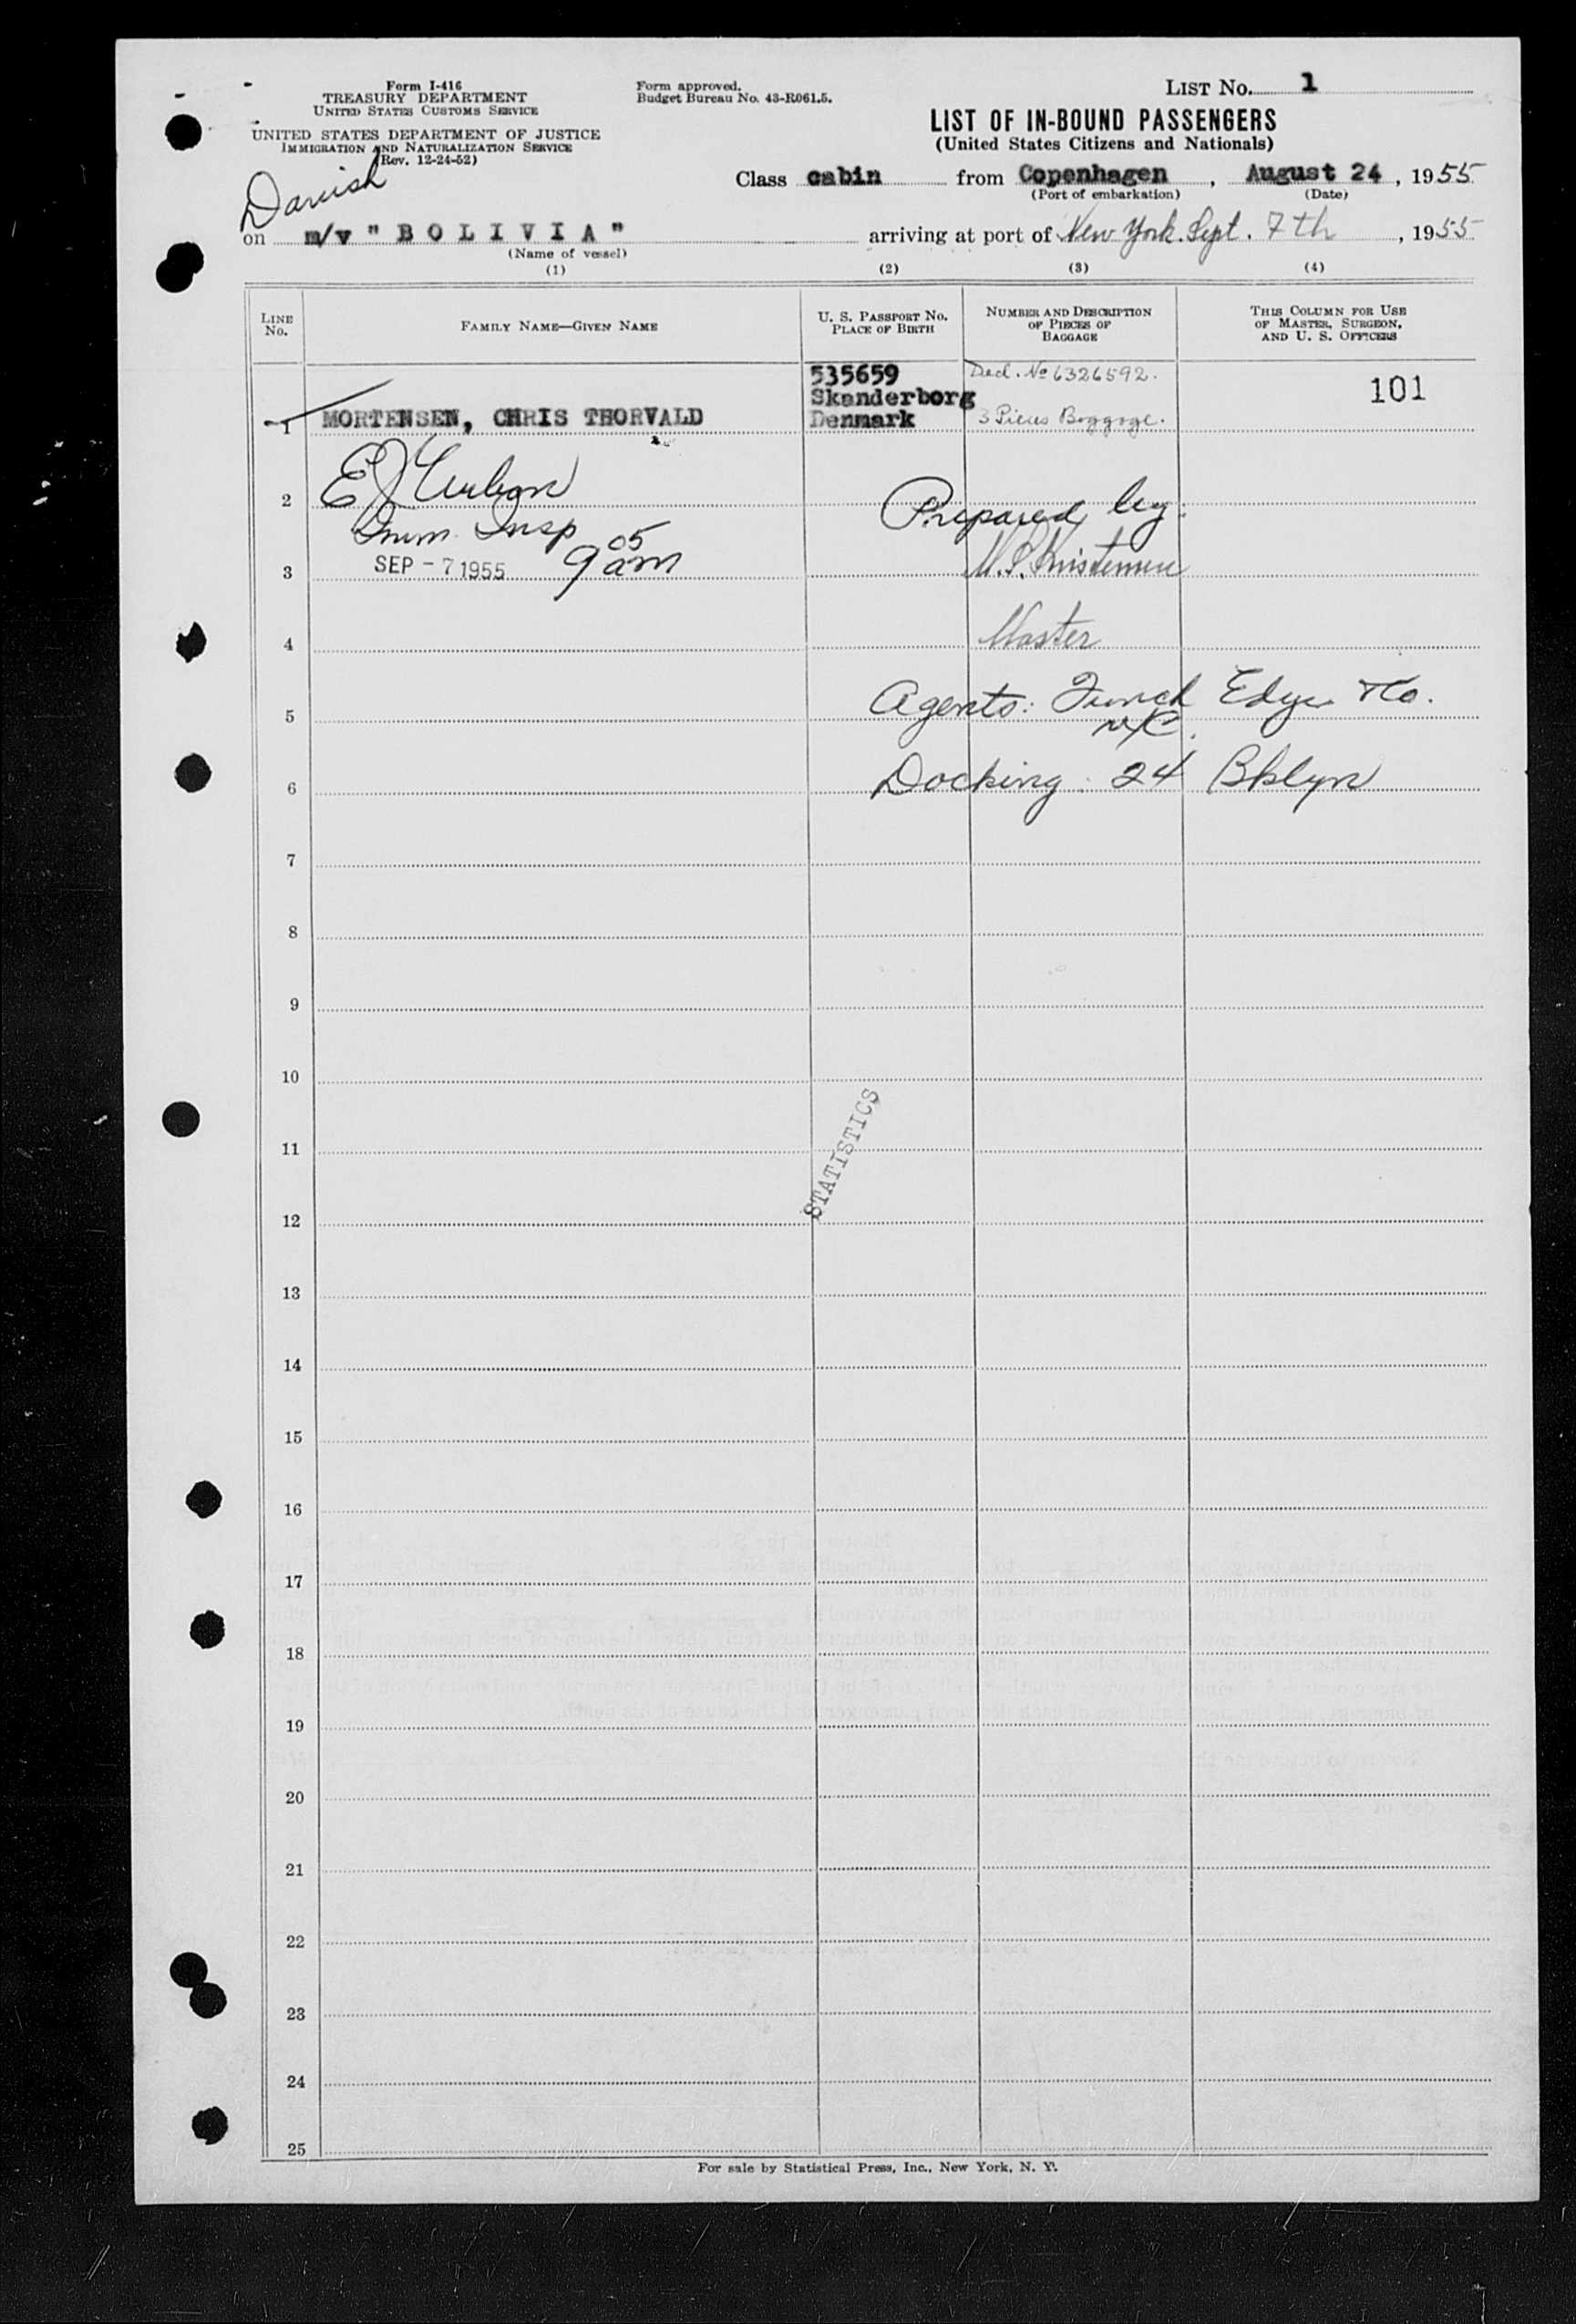 Form I-416
TREASURY DEPARTMENT
UNITED STATES CUSTOMS SERVICE
UNITED STATES DEPARTMENT OF JUSTICE
IMMIGRATION AND NATURALIZATION SERVICE
(Rev. 12-24-52)
Form approved.
Budget Bureau No. 43-R061.5.
LIST No. 1
LIST OF IN-BOUND PASSENGERS
(United States Citizens and Nationals)
Class cabin from Copenhagen, August 24, 1955
(Port of embarkation) (Date)
Danish
on m/v "BOLIVIA" arriving at port of New York. Sept. 7th, 1955
(Name of vessel)
(1) (2) (3) (4)
LINE No.
FAMILY NAME—GIVEN NAME
U. S. PASSPORT No.
PLACE OF BIRTH
NUMBER AND DESCRIPTION
OF PIECES OF
BAGGAGE
THIS COLUMN FOR USE
OF MASTER, SURGEON,
AND U. S. OFFICERS
535659 Decl. No 6326592.
Skanderborg 101
1 MORTENSEN, CHRIS THORVALD Denmark 3 Pieces Baggage.
2 E J
Imm. Insp Prepared by:
3 SEP - 7 1955 9 05 am
4 Master
5 Agents: Funch Edye & Co.
NYC.
6 Docking: 24 Bklyn
7
8
9
10
11
STATISTICS
12
13
14
15
16
17
18
19
20
21
22
23
24
25
For sale by Statistical Press, Inc., New York, N. Y.